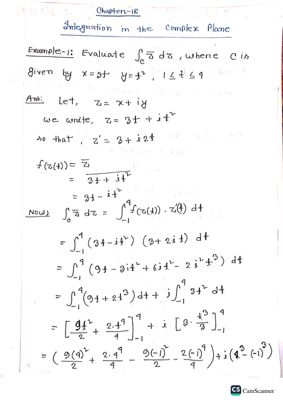 Chapter-18
Integration in the Complex Plane
Example-1: Evaluate ∫_C z̅ dz, where C is
given by x=3t y=t², 1 ≤ t ≤ 9
Ans: Let, z = x + iy
we write, z = 3t + it²
so that, z' = 3 + i2t
f(z(t)) = z̅
= \overline{3t + it²}
= 3t - it²
Now, ∫_C z̅ dz = ∫_{-1}^{4} f(z(t)) · z'(t) dt
= ∫_{-1}^{4} (3t - it²) (3 + 2it) dt
= ∫_{-1}^{4} (9t - 3it² + 6it² - 2i²t³) dt
= ∫_{-1}^{4} (9t + 2t³) dt + i ∫_{-1}^{4} 3t² dt
= [9t²/2 + 2·t⁴/4]_{-1}^{4} + i [3·t³/3]_{-1}^{4}
= (9(4)²/2 + 2·4⁴/4 - 9(-1)²/2 - 2(-1)⁴/4) + i(4³ - (-1)³)
CS CamScanner